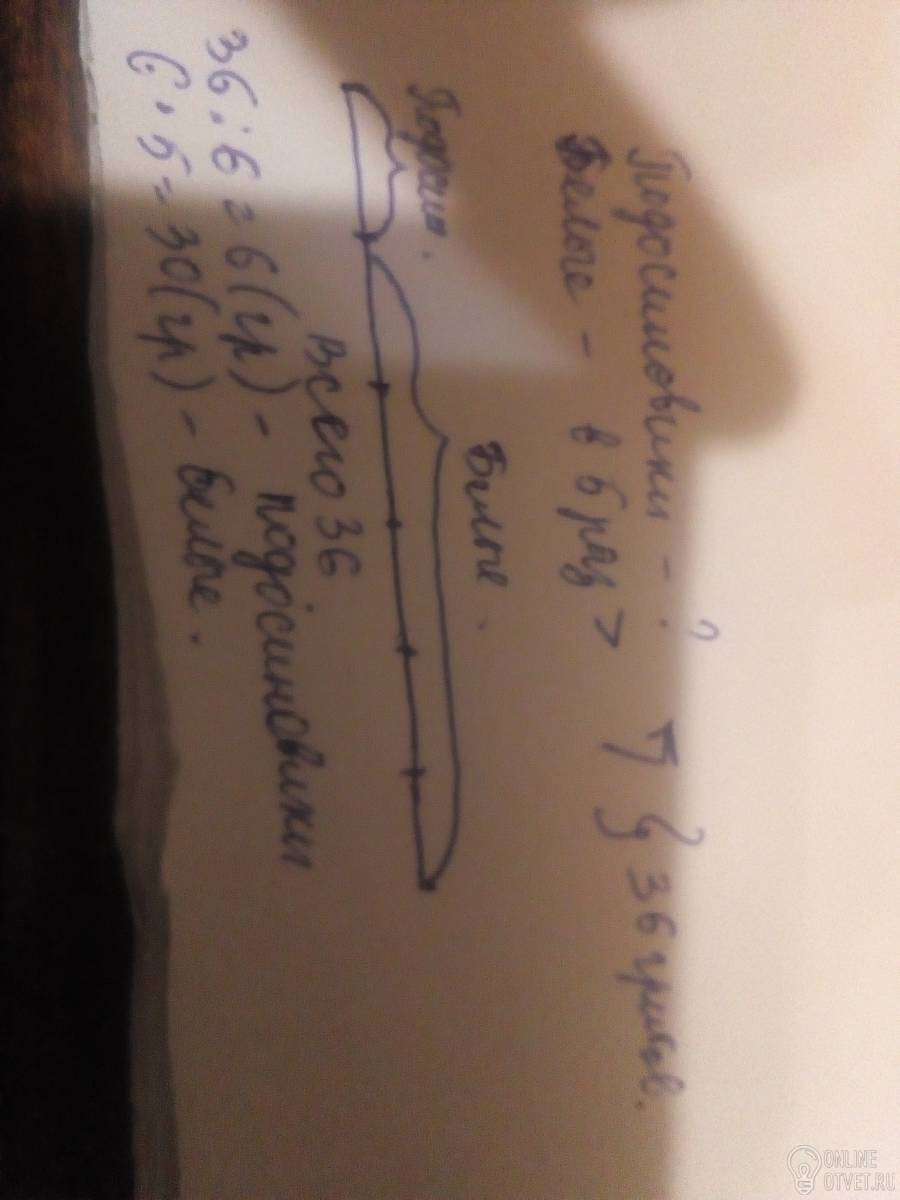 Подосиновики - ?
Белые - в 5 раз >
} 36 грибов.
Белые.
Подосин.
Всего 36
36 : 6 = 6 (гр) - подосиновики
6 · 5 = 30 (гр) - белые.
ONLINE
OTVET.RU